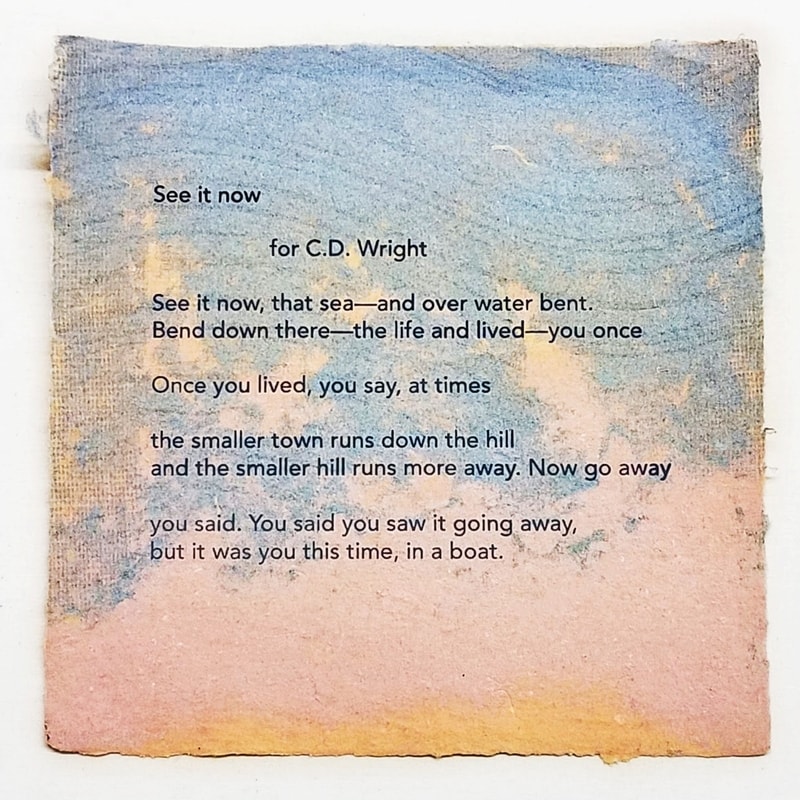 See it now
for C.D. Wright
See it now, that sea—and over water bent.
Bend down there—the life and lived—you once
Once you lived, you say, at times
the smaller town runs down the hill
and the smaller hill runs more away. Now go away
you said. You said you saw it going away,
but it was you this time, in a boat.